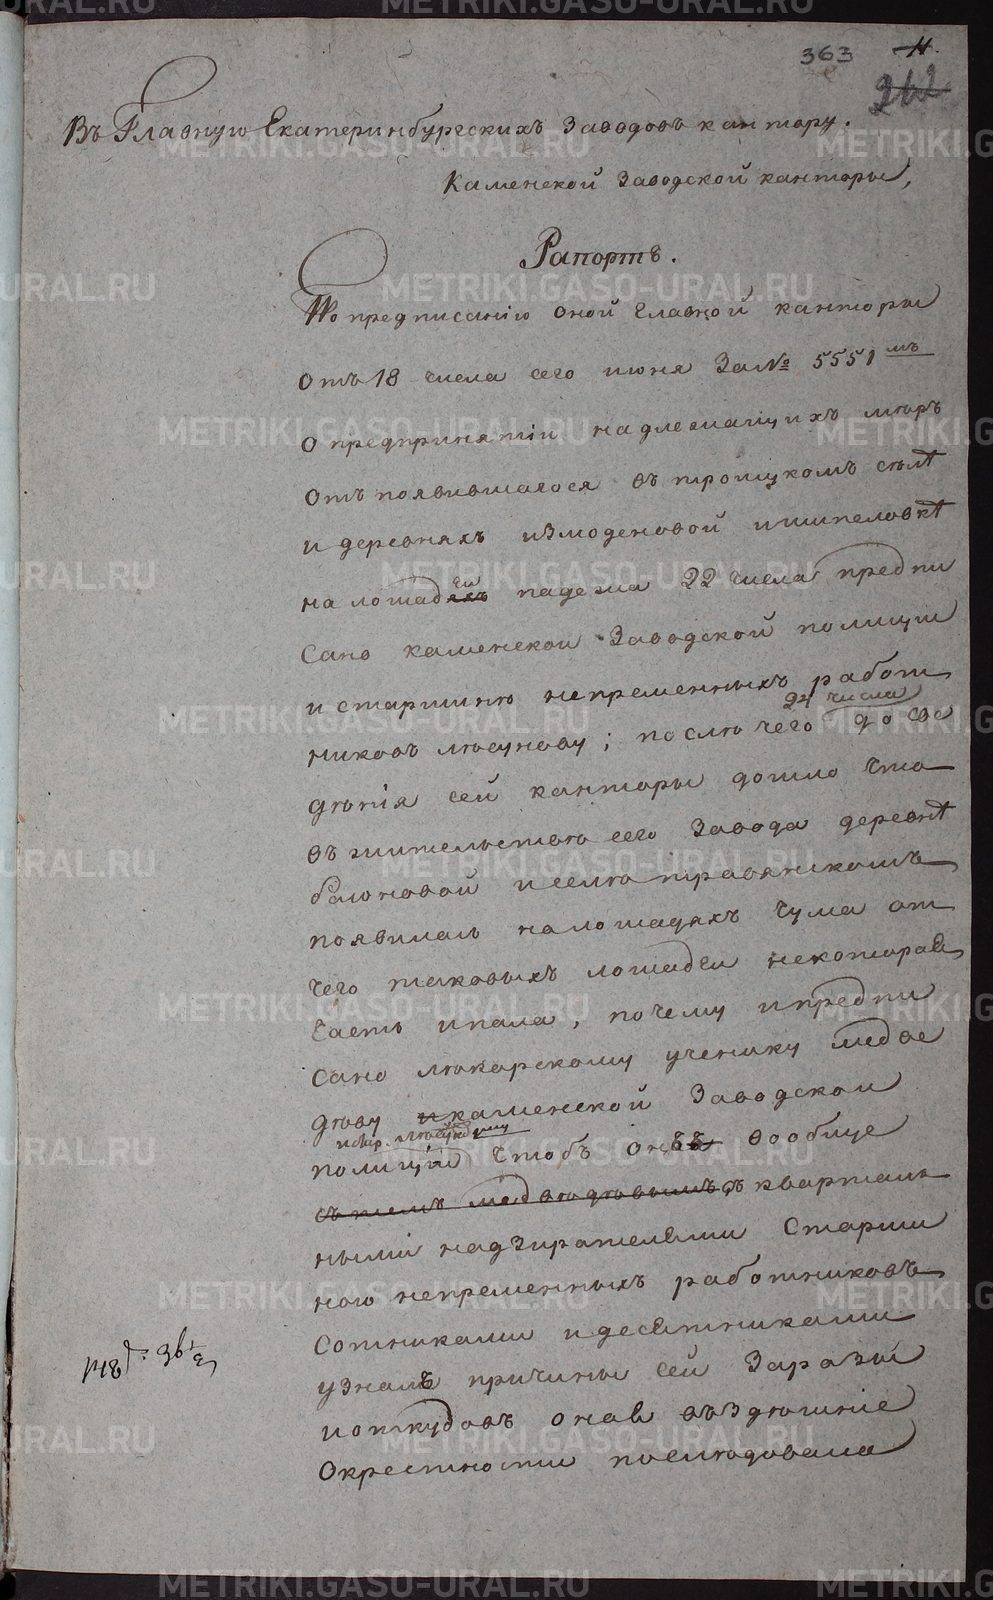 363 11.
262
Въ Главную Екатеринбургскихъ Заводовъ кантору.
Каменской Заводской канторы,
Рапортъ.
По предписанію оной Главной канторы
отъ 18 числа сего июня За № 5551мъ
о предпринятіи надлежащихъ мѣръ
отъ появившагося въ троицкомъ сѣлѣ
и деревняхъ измоденовой и шипеловкѣ
на лошадяхъ падежа 22 числа предпи
сано каменской Заводской полиции
и старшинѣ непременныхъ работ
24 числа
никовъ мѣсунову; послѣ чего до све
дѣнія сей канторы дошло что
въ жительствѣ сего Завода деревнѣ
баиновой и селѣ травянскомъ
появилась на лошадяхъ чума от
чего таковыхъ лошадей некоторая
часть и пала, почему и предпи
сано лѣкарскому ученику медве
дѣву и каменской Заводской
полиціи чтобъ онъ вообще
съ темъ медведѣвымъ съ кварталь
ными надзирателями Старши
ною непременныхъ работниковъ
сотниками и десятниками
узналъ причины сей Заразы
и откудовъ оная въ здѣшніе
окрестности последовала